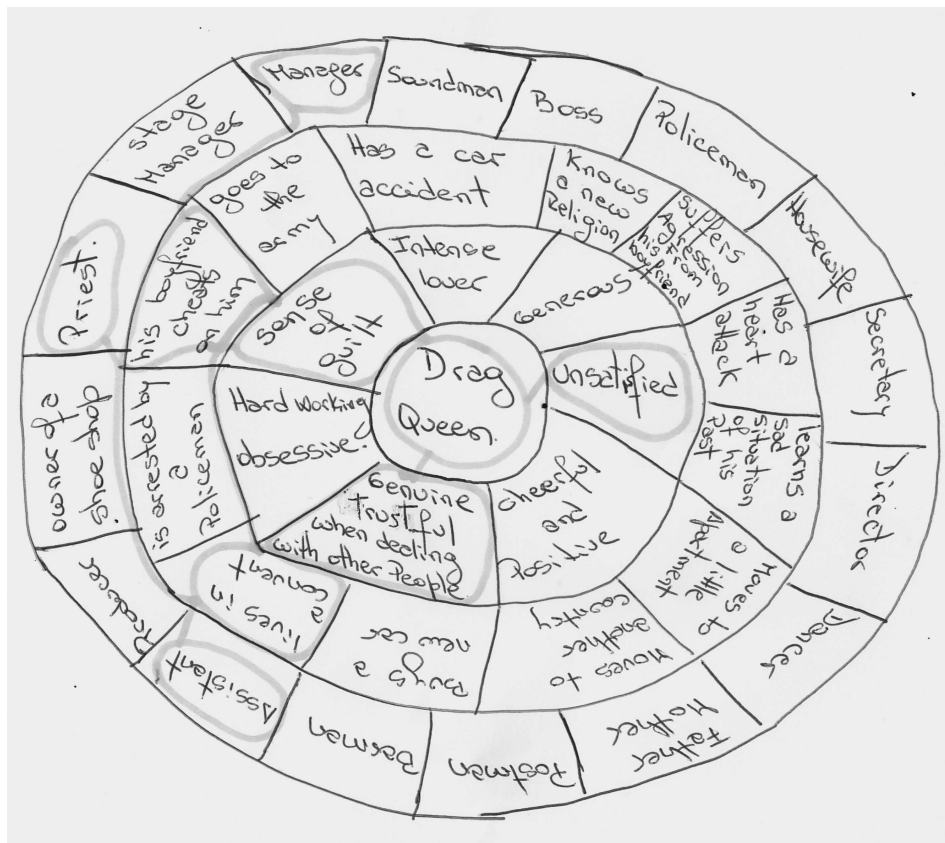 Drag
Queen.
Intense
lover
Generous
Unsatified
cheerful
and
Positive
Genuine
Trustful
when dealing
with other People
Hard working
obsessive?
Sense
of
guilt
Has a car
accident
Knows
a new
Religion
Suffers
Agression
from
his
boyfriend
Has a
heart
attack
learns a
sad
situation
of his
Past
Moves to
a little
Apartment
Moves to
another
country
Buys a
new car
lives in
a
convent
is arrested by
a
Policeman
his boyfriend
cheats
on him
goes to
the
army
Manager
Soundman
Boss
Policeman
Housewife
Secretary
Director
Dancer
Father
Mother
Postman
Barman
Assistant
Producer
owner of a
shoe shop
Priest.
Stage
Manager